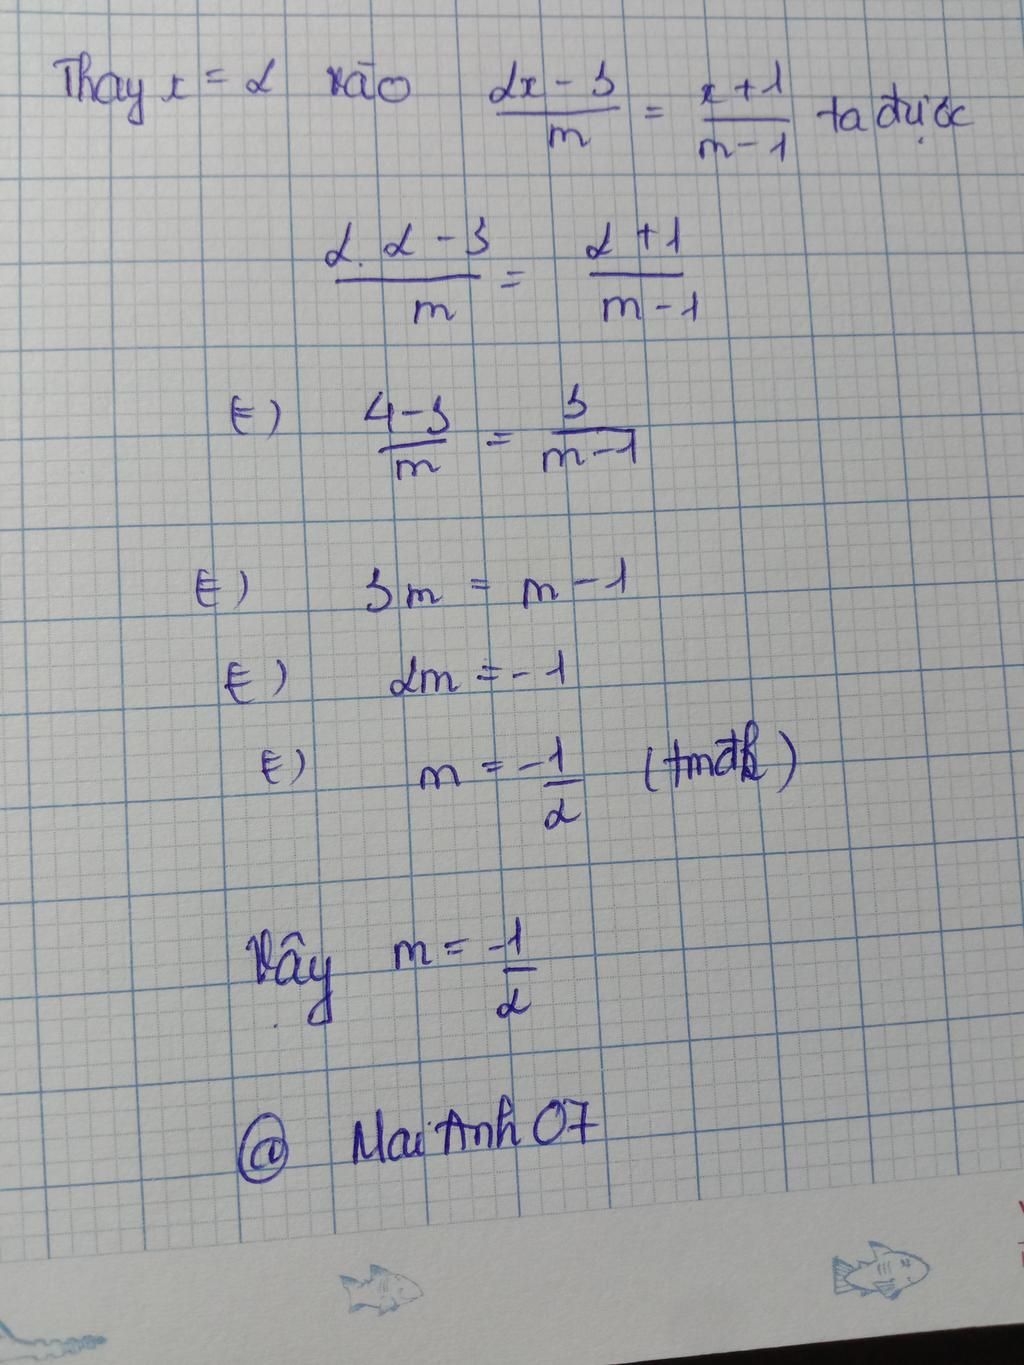 Thay x = 2 vào (2x - 3)/m = (x + 1)/(m - 1) ta được
(2.2 - 3)/m = (2 + 1)/(m - 1)
(=) (4 - 3)/m = 3/(m - 1)
(=) 3m = m - 1
(=) 2m = -1
(=) m = -1/2 (tmđk)
Vậy m = -1/2
@ Mai Anh 07